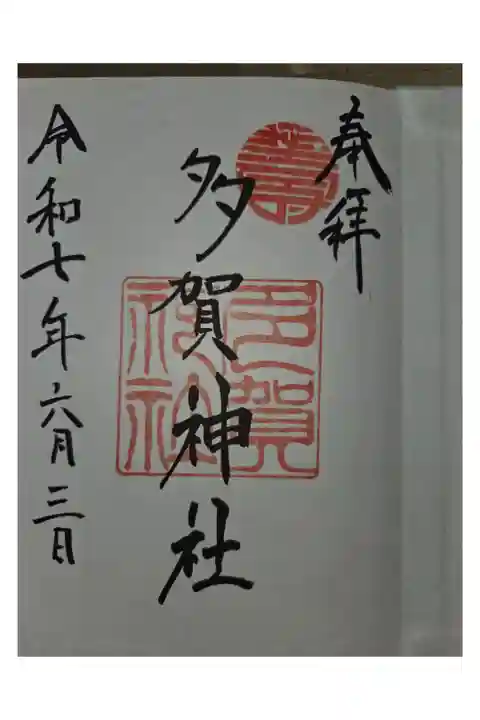 奉拝
壽
多賀神社
多賀
神社
令和七年六月三日